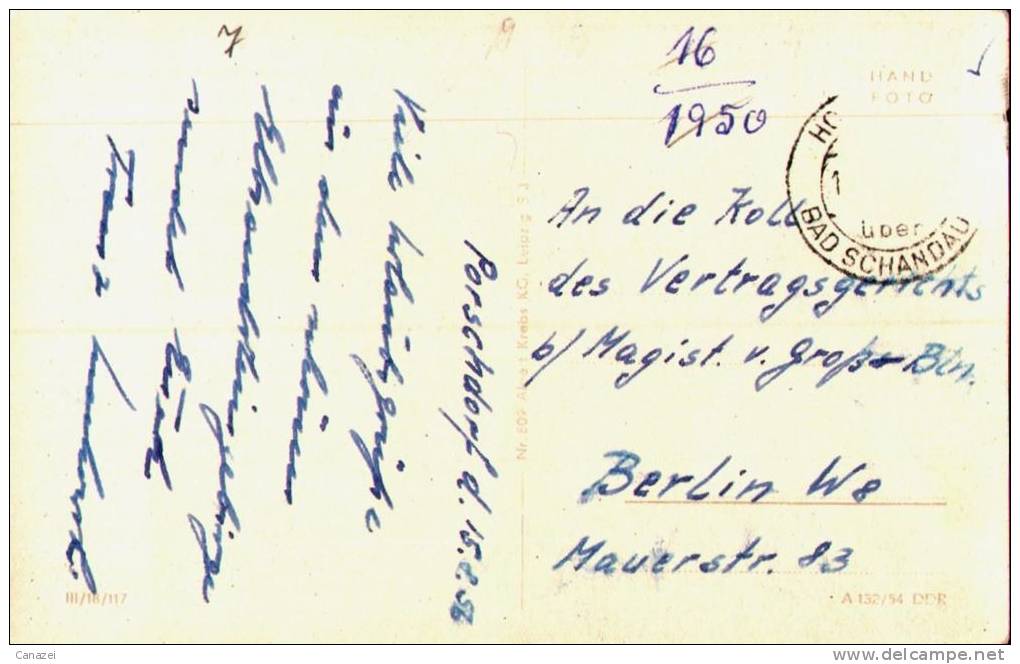 7
16
1950
HAND
FOTO
HO
über
BAD SCHANDAU
Porschdorf d. 15.8.56
Viele Urlaubsgrüße
aus dem schönen
Elbsandsteingebirge
sendet Euch
Franz
An die Koll
des Vertragsgerichts
b/ Magist. v. Groß-Bln.
Berlin W8
Mauerstr. 83
Krebs KG, Leipzig
III/18/117
A 132/54 DDR
Canazei
www.delcampe.net